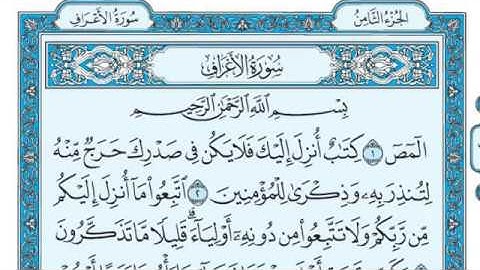 الجزء الثامن
سورة الأعراف
سورة الأعراف
بِسْمِ اللَّهِ الرَّحْمَٰنِ الرَّحِيمِ
الٓمٓصٓ ۝١ كِتَٰبٌ أُنزِلَ إِلَيْكَ فَلَا يَكُن فِى صَدْرِكَ حَرَجٌ مِّنْهُ
لِتُنذِرَ بِهِۦ وَذِكْرَىٰ لِلْمُؤْمِنِينَ ۝٢ ٱتَّبِعُوا۟ مَآ أُنزِلَ إِلَيْكُم
مِّن رَّبِّكُمْ وَلَا تَتَّبِعُوا۟ مِن دُونِهِۦٓ أَوْلِيَآءَ ۗ قَلِيلًا مَّا تَذَكَّرُونَ